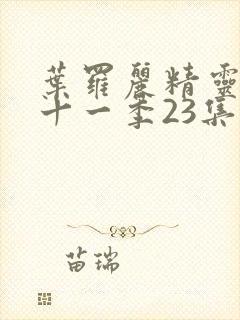 葉羅麗精靈
十一季23集
苗瑞